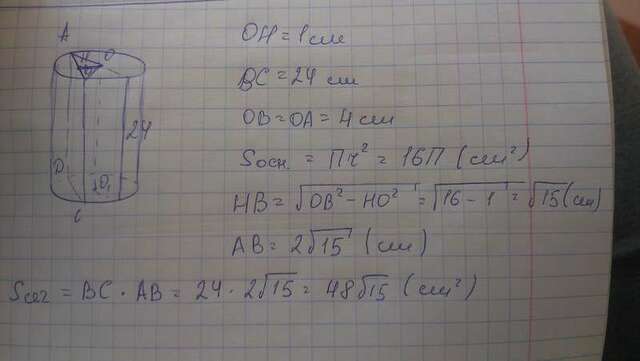 A
O
24
D
O₁
C
OH = 1 см
BC = 24 см
OB = OA = 4 см
Sосн. = Пr² = 16П (см²)
HB = √OB² – HO² = √16 – 1 = √15 (см)
AB = 2√15 (см)
Sсеч = BC · AB = 24 · 2√15 = 48√15 (см²)